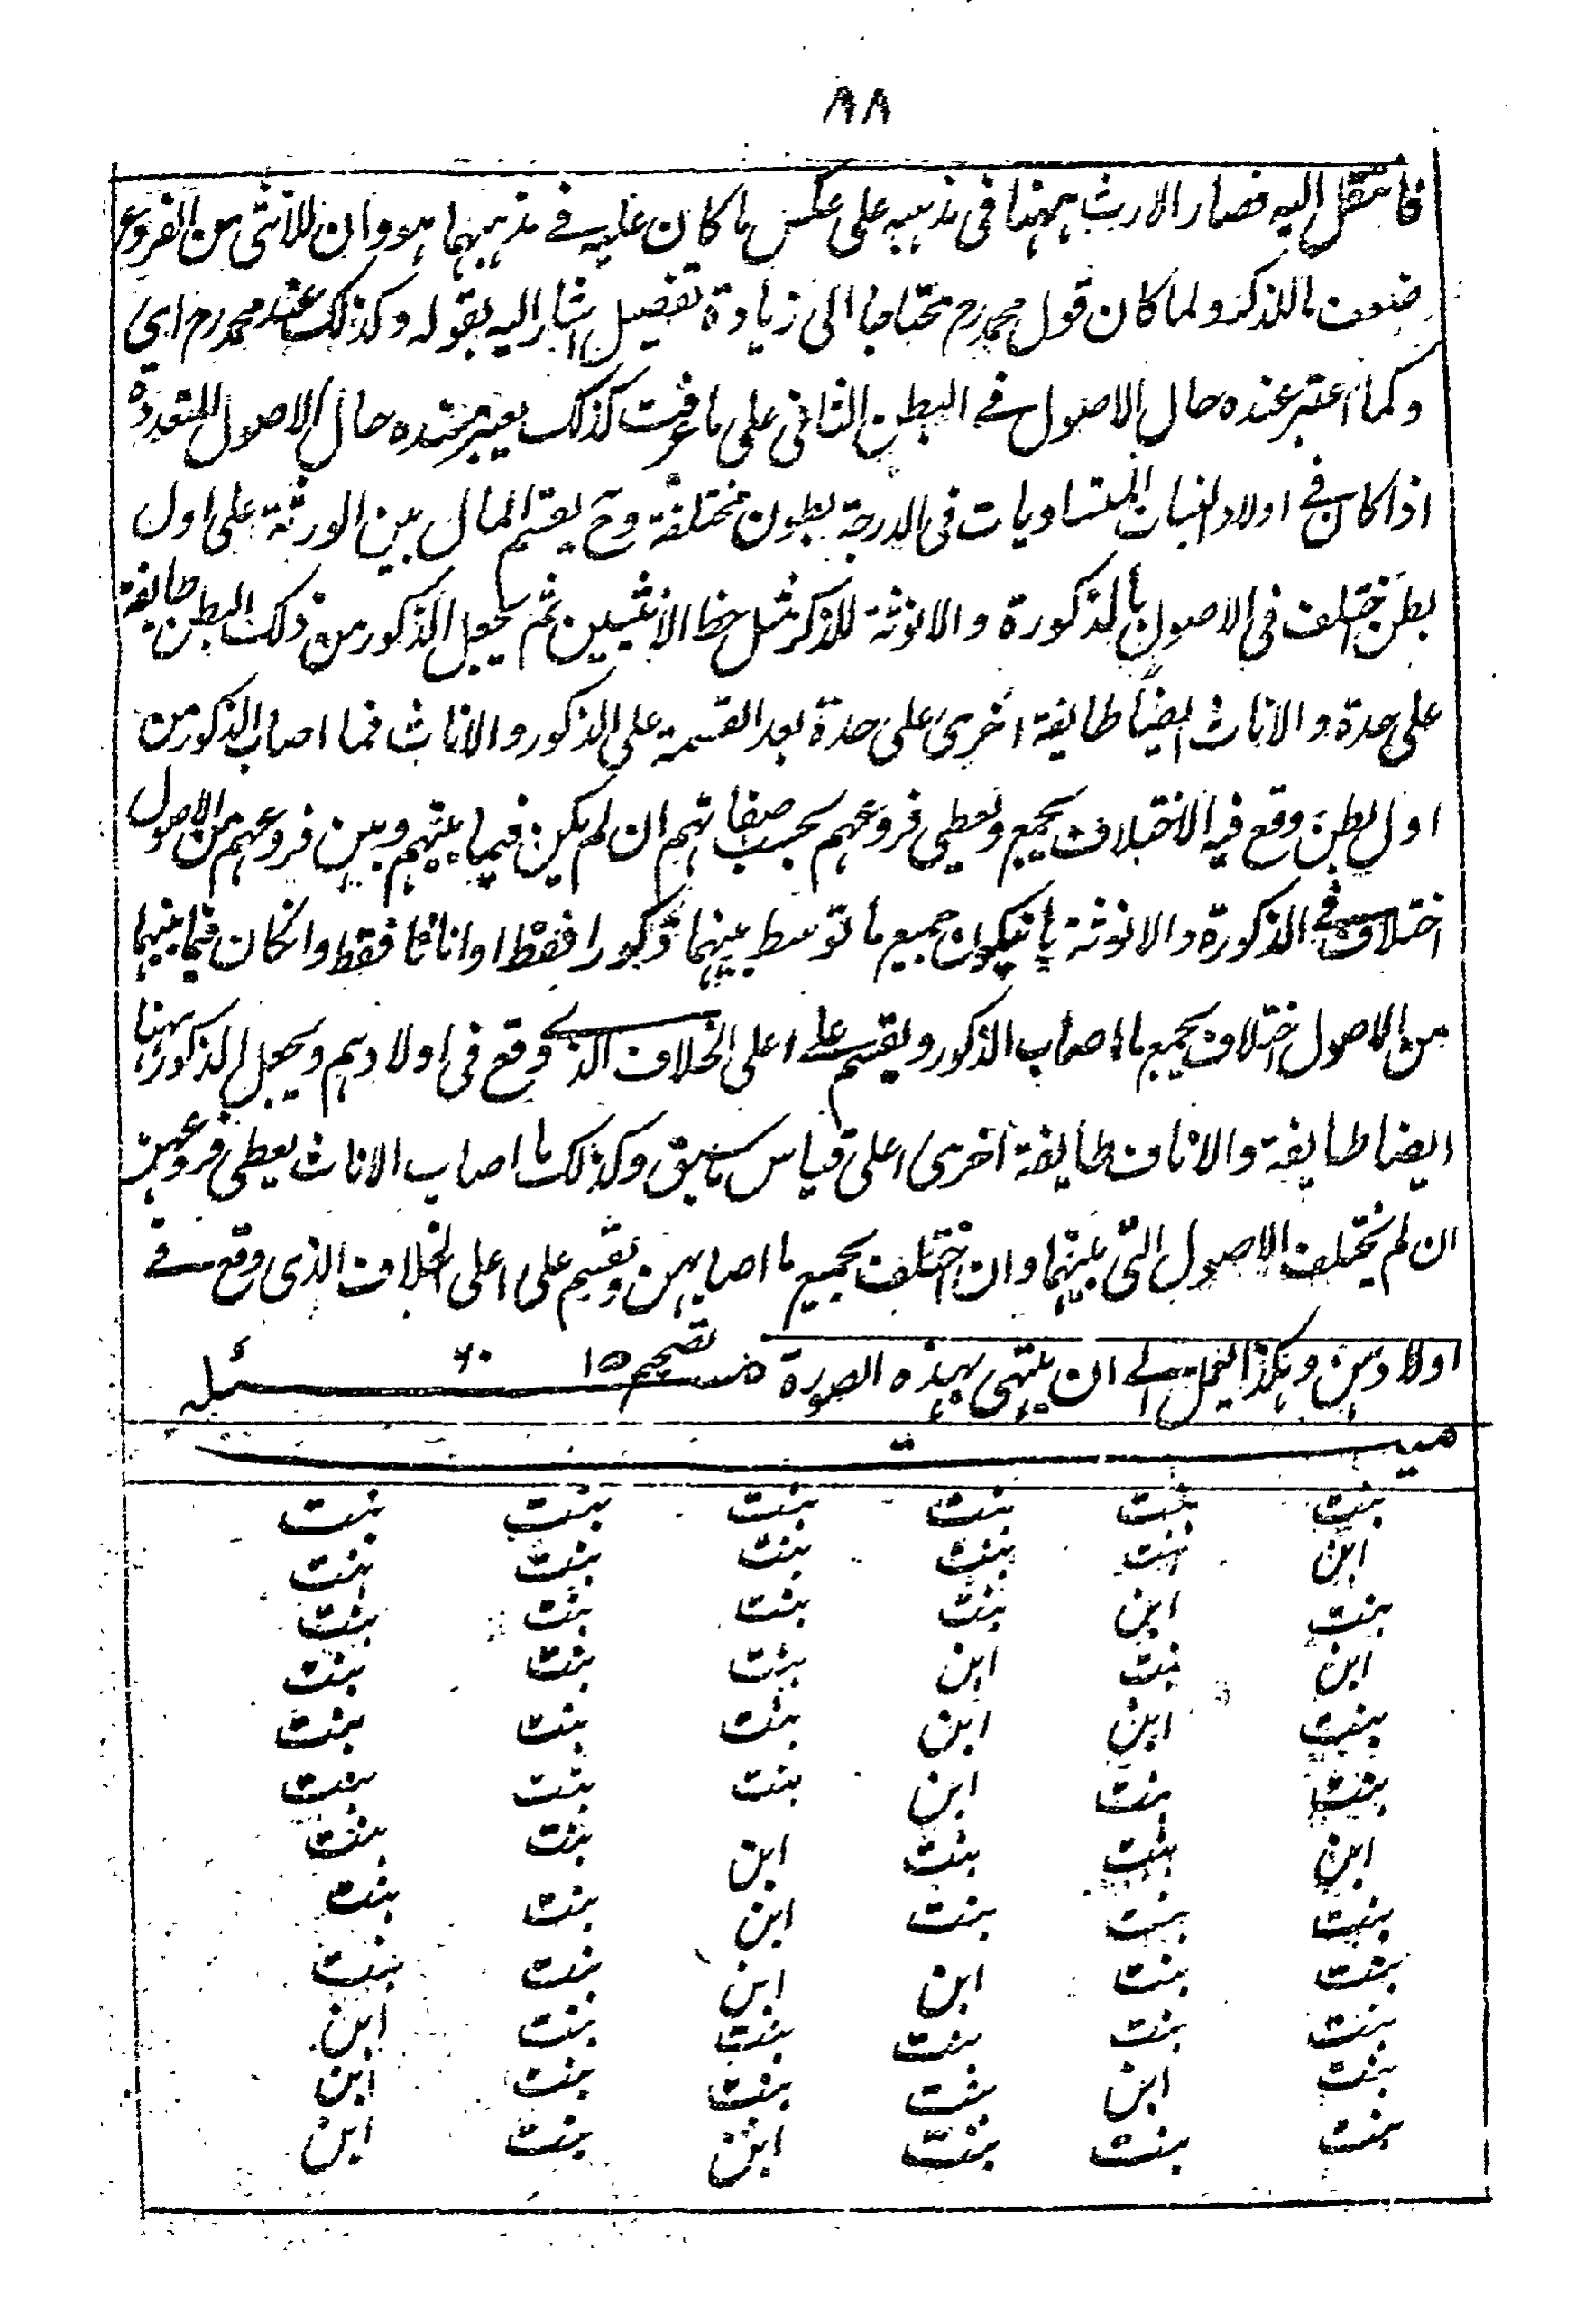 ٨٨
فانتقل اليه فصار الارث ههنا فى مذهبه على عكس ما كان عليه فے مذهبهما هو وان للانثى من الفروع
ضعف ما للذكر ولما كان قول محمد رح محتاجا الى زيادة تفصيل اشار اليه بقوله وكذلك عند محمد رح اى
وكما اعتبر عنده حال الاصول فے البطن الثانى على ما عرفت كذلك يعتبر عنده حال الاصول المتعددة
اذا كان فے اولاد البنات المتساويات فى الدرجة بطون مختلفة وح يقسم المال بين الورثة على اول
بطن اختلف فى الاصول بالذكورة والانوثة للذكر مثل حظ الانثيين ثم يجعل الذكور من ذلك البطن طايفة
على حدة والاناث ايضا طايفة اخرى على حدة بعد القسمة على الذكور والاناث فما اصاب الذكور من
اول بطن وقع فيه الاختلاف يجمع ويعطى فروعهم بحسب صفاتهم ان لم يكن فيما بينهم وبين فروعهم من الاصول
اختلاف فے الذكورة والانوثة بانيكون جميع ما توسط بينهما ذكورا فقط او اناثا فقط وانكان فيما بينهما
من الاصول اختلاف يجمع ما اصاب الذكور ويقسم علے اعلى الخلاف الذے وقع فى اولادهم ويجعل الذكور ههنا
ايضا طايفة والاناث طايفة اخرى على قياس ما سبق وكذلك ما اصاب الاناث يعطى فروعهن
ان لم يختلف الاصول التى بينهما وان اختلف يجمع ما اصابهن ويقسم على اعلى الخلاف الذى وقع فے
اولادهن وهكذا يعمل الے ان ينتهى بهذه الصورة مسئله تصحيح ١٥ ٦٠
ميت
بنت بنت بنت بنت بنت بنت
ابن بنت بنت بنت بنت بنت
بنت ابن بنت بنت بنت بنت
ابن بنت ابن بنت بنت بنت
بنت ابن ابن بنت بنت بنت
بنت بنت ابن بنت بنت بنت
ابن بنت بنت ابن بنت بنت
بنت بنت بنت ابن بنت بنت
بنت بنت ابن ابن بنت بنت
بنت بنت بنت بنت بنت ابن
بنت ابن بنت بنت بنت ابن
بنت بنت بنت ابن بنت ابن